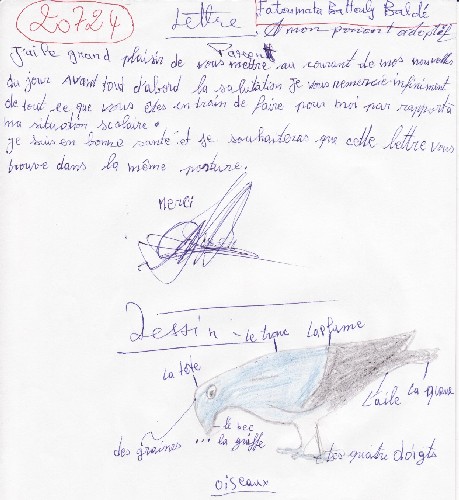 20724
Lettre
Fatoumata Bailouly Baldé
A mon parent adoptif
J'ai le grand plaisir de vous mettre au courant de mes nouvelles
du jour avant tout d'abord la salutation je vous remercie infiniment
de tout ce que vous êtes en train de faire pour moi par rapport à
ma situation scolaire.
je suis en bonne santé et je souhaiteras que cette lettre vous
trouve dans la même posture.
Merci
Dessin
le tronc
La plume
La tete
L'aile
La queue
le bec
la griffe
des graines
Les quatre doigts
oiseaux